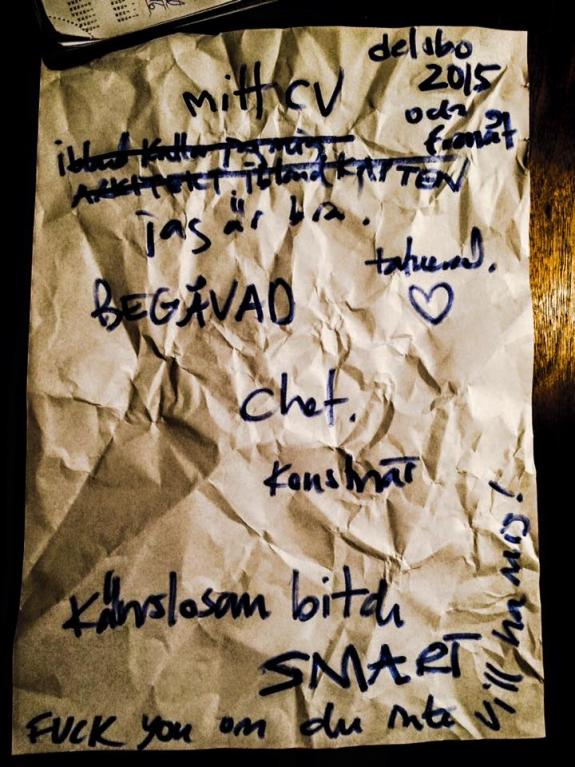 delsbo
2015
och
framåt
mitt CV
ibland
ARKITEKT ibland KATTEN
jag är bra.
BEGÅVAD
♡
Chef.
Konstnär
Känslosam bitch
SMART
FUCK you om du inte vill ha mig!